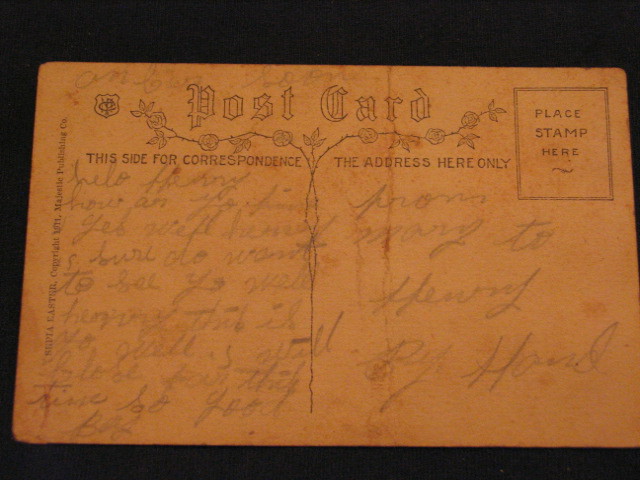 Post Card
PLACE
STAMP
HERE
THIS SIDE FOR CORRESPONDENCE
THE ADDRESS HERE ONLY
SEPIA EASTER, Copyright 1911, Majestic Publishing Co.
soon
helo Henry
how ar yo
yes well henry
i sure do want
to see yo well
henry this is
yo well i will
close for this
time so good
Bye
from
mary to
Henry
By Hand